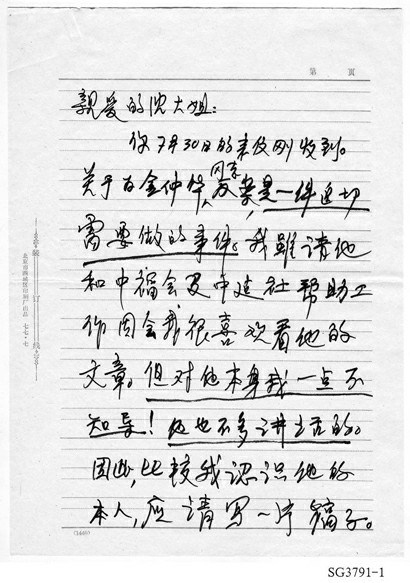 第 页
親爱的沈大姐:
你7月30日的来信刚收到。
同志
关于 金仲华, 案是一件迫切
需要做的事件。我雖请他
和中福会及中建社帮助工
作因会我很喜欢看他的
文章。但对他本身我一点不
知导!他也不多讲生活的。
因此,比较我認识他的
本人,应请写一片稿子。
装订线
七七·七
SG3791-1